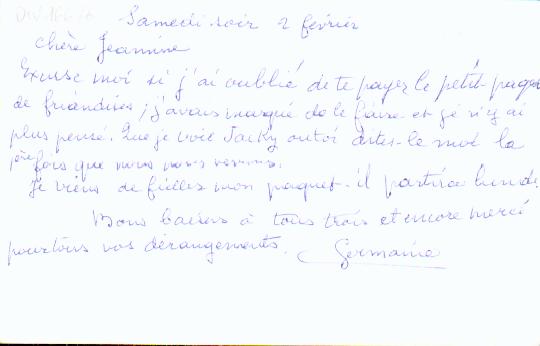 Samedi soir 2 février
Chère Jeannine
Excuse moi si j'ai oublié de te payer le petit paquet
de friandises, j'avais marqué de le faire et je n'y ai
plus pensé. Que je voie Jacky ou toi dites-le moi la
1ère fois que nous nous verrons.
Je viens de ficeler mon paquet - il partira lundi.
Bons baisers à tous trois et encore merci
pour tous vos dérangements. Germaine